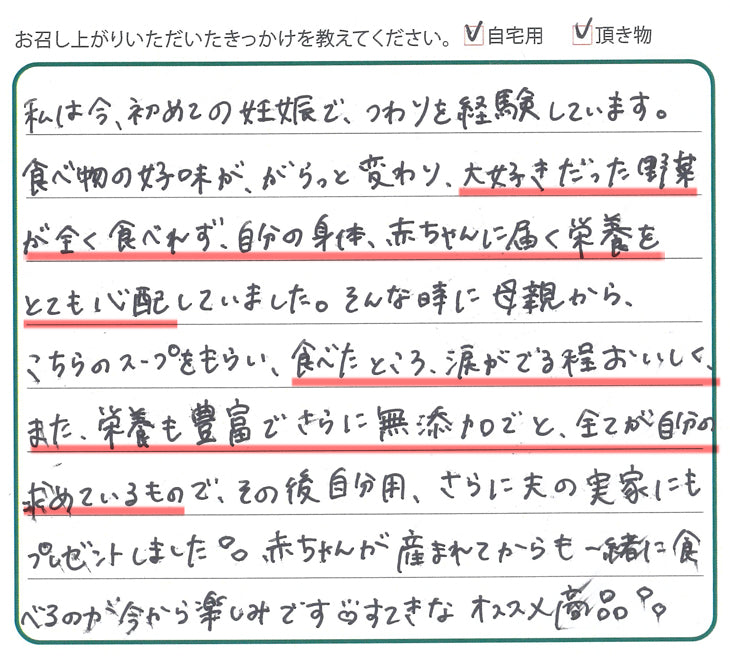 お召し上がりいただいたきっかけを教えてください。 ☑自宅用 ☑頂き物
私は今、初めての妊娠で、つわりを経験しています。
食べ物の好味が、がらっと変わり、大好きだった野菜
が全く食べれず、自分の身体、赤ちゃんに届く栄養を
とても心配していました。そんな時に母親から、
こちらのスープをもらい、食べたところ、涙がでる程おいしく、
また、栄養も豊富でさらに無添加でと、全てが自分の
求めているもので、その後自分用、さらに夫の実家にも
プレゼントしました♡。赤ちゃんが産まれてからも一緒に食
べるのが今から楽しみです♡すてきなオススメ商品♡♡